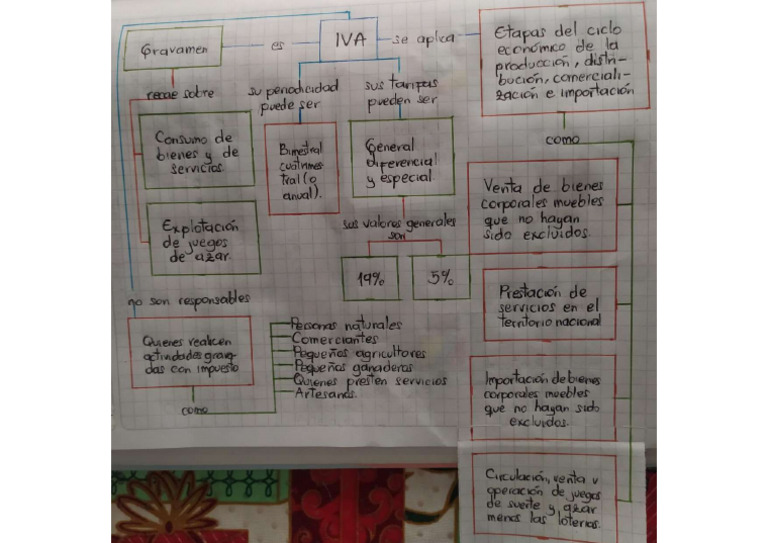 Gravamen
es
IVA
se aplica
Etapas del ciclo
económico de la
producción, distri-
bución, comerciali-
zación e importación
recae sobre
Consumo de
bienes y de
servicios.
Explotación
de juegos
de azar.
su periodicidad
puede ser
Bimestral
cuatrimes
tral (o
anual).
sus tarifas
pueden ser
General
diferencial
y especial.
sus valores generales
son
19%
5%
como
Venta de bienes
corporales muebles
que no hayan
sido excluidos.
Prestación de
servicios en el
territorio nacional
Importación de bienes
corporales muebles
que no hayan sido
excluidos.
Circulación, venta y
operación de juegos
de suerte y azar
menos las loterias.
no son responsables
Quienes realicen
actividades grava-
das con impuesto
como
Personas naturales
Comerciantes
Pequeños agricultores
Pequeños ganaderos
Quienes presten servicios
Artesanos.